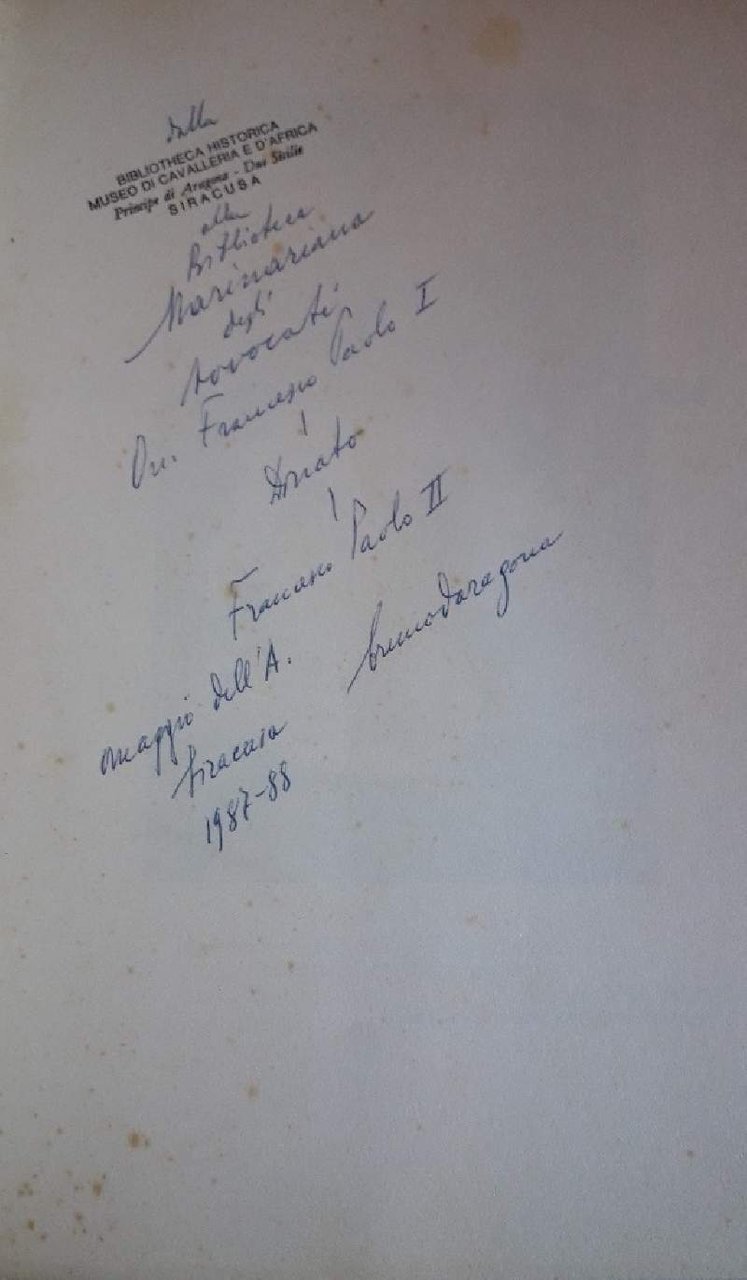 dalla
BIBLIOTHECA HISTORICA
MUSEO DI CAVALLERIA E D'AFRICA
Principe di Aragona - Due Sicilie
SIRACUSA
alla
Biblioteca
Marinariana
degli
Avvocati
On. Francesco Paolo I
Donato
Francesco Paolo II
omaggio dell'A.
Siracusa
1987-88